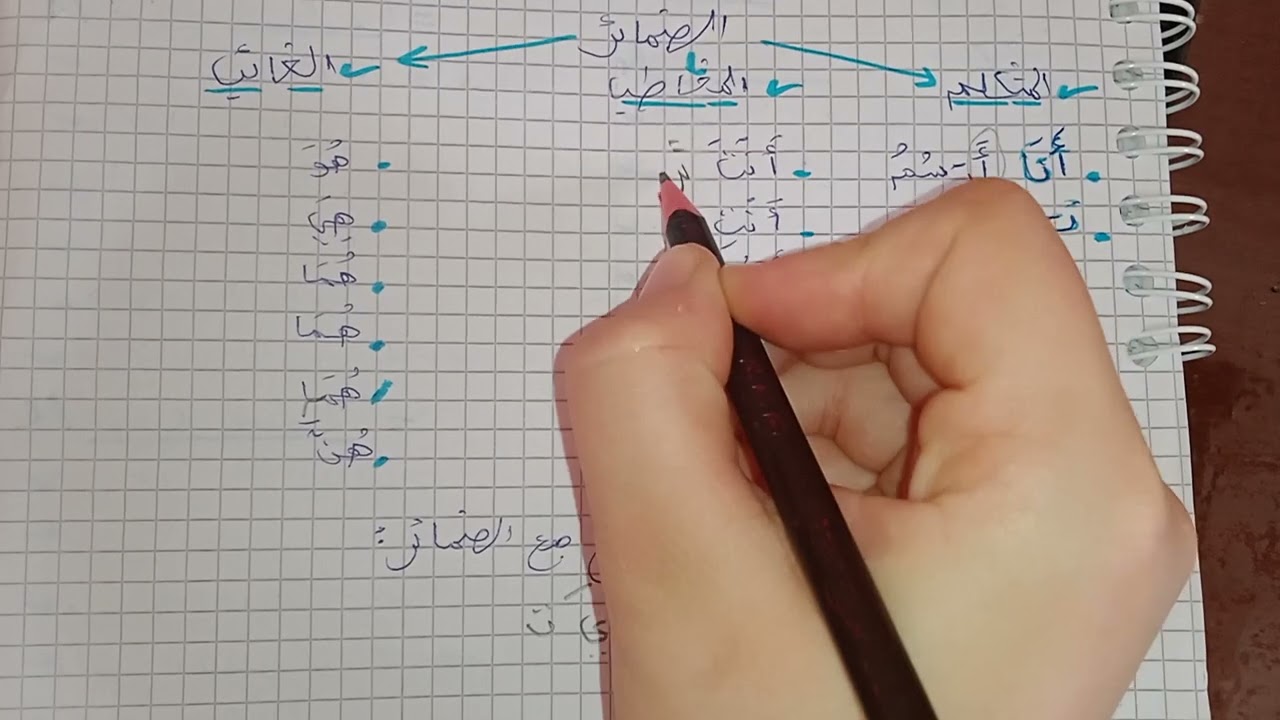 الضمائر
المتكلم المخاطب الغائب
أَنَا أَرْسُمُ أَنْتَ = هُوَ
أَنْتِ هِيَ
هُمَا
هُمَا
هُمْ
هُنَّ
مع الضمائر:
ن